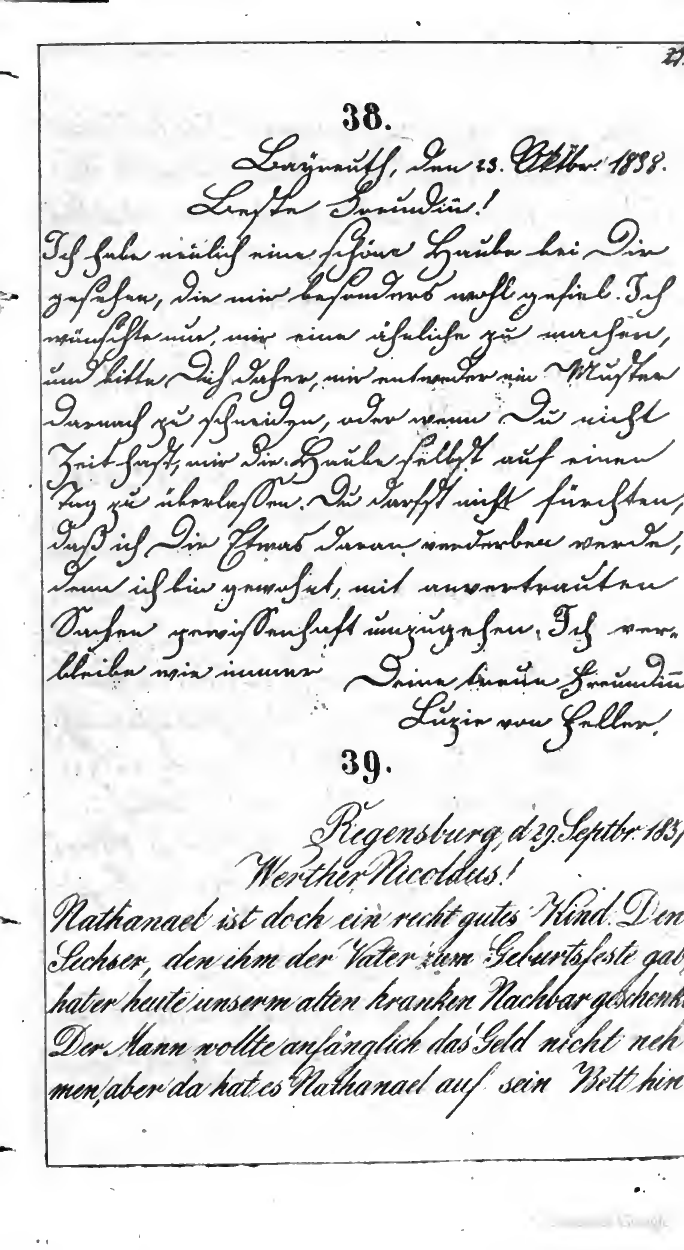 38.
Bayreuth, den 23. Oktbr. 1838.
Beste Freundin̄!
Ich habe neülich eine schöne Haube bei Dir
gesehen, die mir besonders wohl gefiel. Ich
wünschte nur, mir eine ähnliche zu machen,
und bitte Dich daher, mir entweder ein Muster
darnach zu schneiden, oder wenn Du nicht
Zeit hast, mir die Haube selbst auf einen
Tag zu überlassen. Du darfst nicht fürchten,
daß ich Dir Etwas daran verderben werde,
denn ich bin gewohnt, mit anvertrauten
Sachen gewissenhaft umzugehen. Ich ver-
bleibe wie immer Deine treue Freundin̄
Luzie von Heller.
39.
Regensburg, d 29. Septbr. 183
Werther Nicolaus!
Nathanael ist doch ein recht gutes Kind. Den
Sechser, den ihm der Vater zum Geburtsfeste gab,
hat er heute unserm alten kranken Nachbar geschenk
Der Mann wollte anfänglich das Geld nicht neh
men, aber da hat es Nathanael auf sein Bett hin